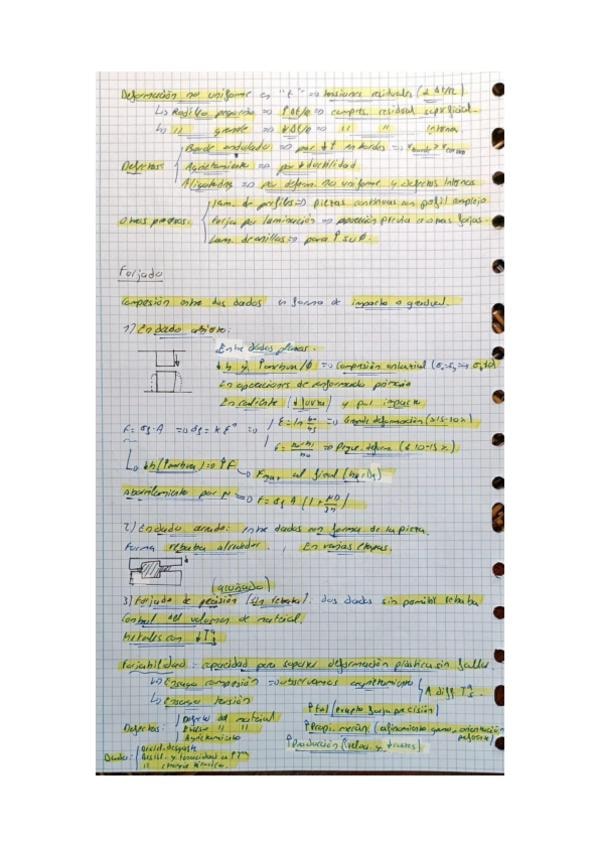 Deformación no uniforme en "t" => tensiones residuales (d Δt/R)
↳ Rodillo pequeño => ↑Δt/R => compres. residual superficial.
↳ " grande => ↓Δt/R => " " interna.
Defectos: Borde ondulado => por ↓t en bordes =>
Agrietamiento => por ↓ductilidad
Aligatoring => por deform. no uniforme y defectos internos
Otros procesos: Lam. de perfiles => piezas continuas con perfil complejo
Forja por laminación => operación previa a otras forjas.
Lam. de anillos => para ↑ su Ø.
Forjado
Compresión entre dos dados en forma de impacto o gradual.
1) En dado abierto:
Entre dados planos.
↓h y ↑anchura/Ø => compresión uniaxial
En operaciones de conformado
En caliente y por impacto
F = σf·A => σf = k ε^n => ε = ln h0/hf => Grande deformación (>15-10%)
=> Peque. deform. (≤10-15%)
↳ ↓h (↑anchura) => ↑F Fmax al final
Abarrilamiento por μ => F = σf A (1 +
2) En dado cerrado: entre dados con forma de la pieza.
Forma rebaba alrededor. En varias etapas.
(acuñado)
3) Forjado de precisión (sin rebaba): dos dados sin permitir rebaba
Control del volumen de material.
Metales con ↓T
Forjabilidad = capacidad para soportar deformación plástica sin fallar
↳ Ensayo compresión => observamos agrietamiento A diff Tªs.
↳ Ensayo torsión
Defectos: Defecto del material
" "
Agrietamiento
↑tol (excepto forja precisión)
↑Prop. mecán (afinamiento grano, orientación
↑Producción (veloc. y
Dados: Resist. desgaste
Resist. y tenacidad a ↑Tª
" choque térmico.